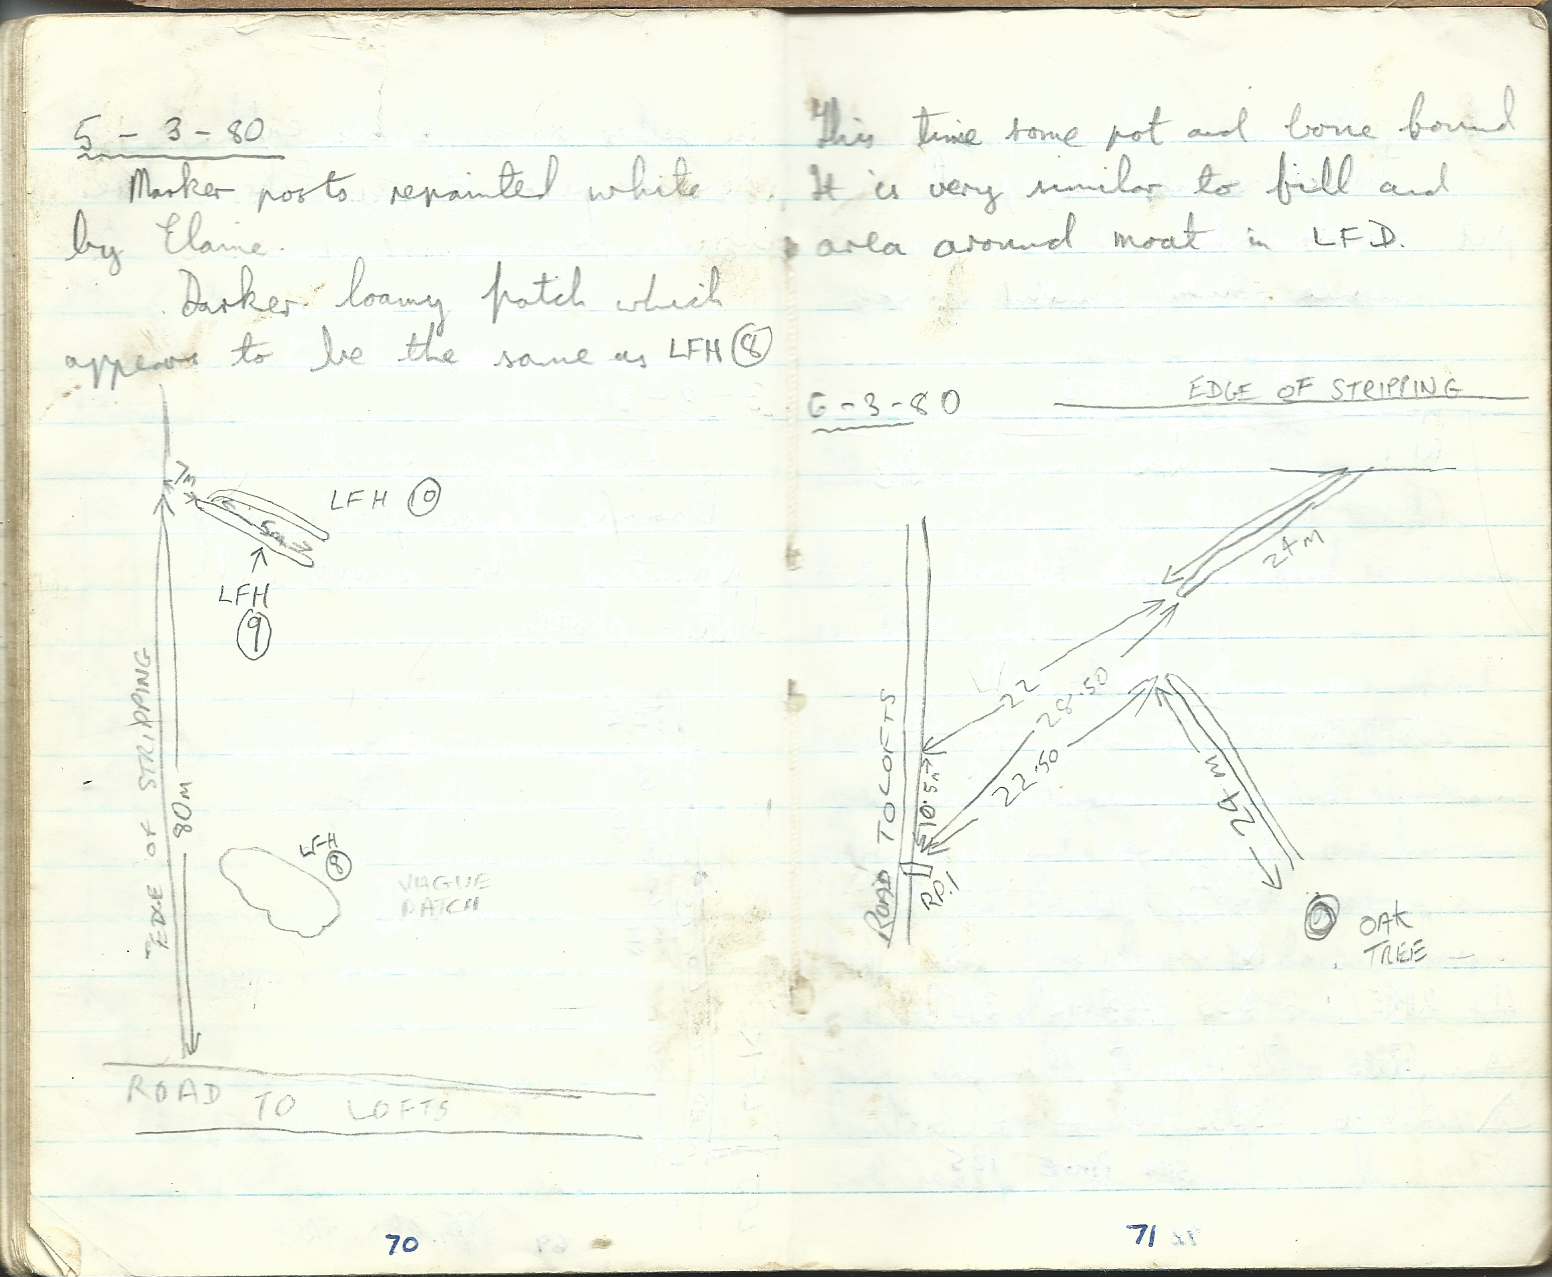 5 - 3 - 80
Marker posts repainted white
by Elaine.
Darker loamy patch which
appears to be the same as LFH 8
7m
LFH 10
5m
LFH
9
EDGE OF STRIPPING
80m
LFH
8
VAGUE
PATCH
ROAD TO LOFTS
70
This time some pot and bone found
It is very similar to fill and
area around moat in LFD.
6 - 3 - 80
EDGE OF STRIPPING
24m
22
28.50
22.50
10.5m
24m
ROAD TO LOFTS
RP.1
OAK
TREE
71